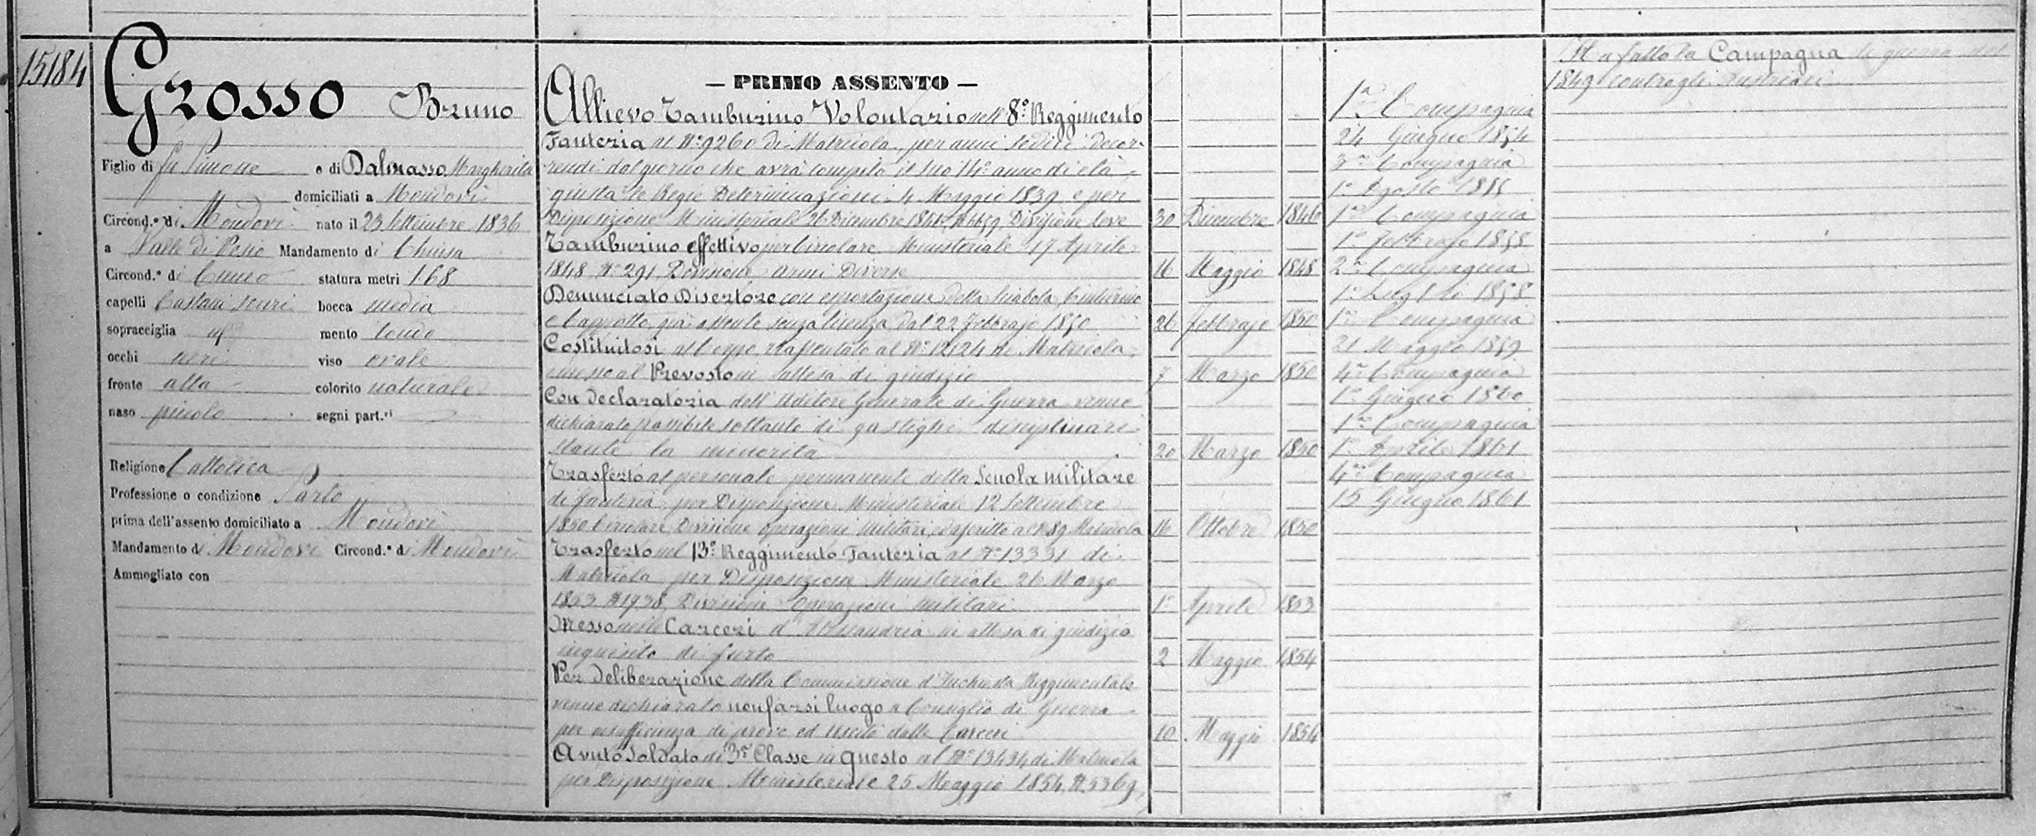 15184
Grosso Bruno
Figlio di fu Simone e di Dalmasso Margherita
domiciliati a Mondovì
Circond.º di Mondovì nato il 23 Settembre 1836
a Valle di Pesio Mandamento di Chiusa
Circond.º di Cuneo statura metri 1.68
capelli Castani scuri bocca media
sopracciglia mento tondo
occhi neri viso ovale
fronte alta colorito naturale
naso piccolo segni part.ri
Religione Cattolica
Professione o condizione Sarto
prima dell'assento domiciliato a Mondovì
Mandamento di Mondovì Circond.º di Mondovì
Ammogliato con
— PRIMO ASSENTO —
Allievo Tamburino Volontario nell' 8º Reggimento
Fanteria al Nº 9260 di Matricola per anni sedici decor-
rendi dal giorno che avrà compito il suo 14º anno di età
giusta le Regie Determinazioni 4 Maggio 1839 e per
Disposizione Ministeriale 26 Dicembre Divisione Leve 30 Dicembre 1846
Tamburino effettivo per Circolare Ministeriale 17 Aprile
1848 Nº 291 Divisione Armi Diverse 16 Maggio 1848
Denunciato Disertore con esportazione della Sciabola, Cinturino
e Cappotto, già assente senza licenza dal 22 Febbrajo 1850 26 Febbrajo 1850
Costituitosi al Corpo riassentato al Nº 12124 di Matricola,
e messo al Prevosto in attesa di giudizio 7 Marzo 1850
Con declaratoria dell'Uditore Generale di Guerra venne
dichiarato passibile soltanto di gastighi disciplinari
stante la minorità 20 Marzo 1850
Trasferto al personale permanente della Scuola militare
di fanteria per Disposizione Ministeriale 12 Settembre
1850 Circolare Divisione Operazioni Militari, e inscritto al Nº 89 Matricola 16 Ottobre 1850
Trasferto nel 13º Reggimento Fanteria al Nº 13331 di
Matricola per Disposizione Ministeriale 26 Marzo
1853 Nº 1938, Divisione Operazioni Militari 1º Aprile 1853
Messo nelle Carceri d'Alessandria in attesa di giudizio
inquisito di furto 2 Maggio 1854
Per deliberazione della Commissione d'Inchiesta Reggimentale
venne dichiarato non farsi luogo a Consiglio di Guerra
per insufficienza di prove ed uscito dalle Carceri 10 Maggio 1854
Avuto Soldato di 3ª Classe in questo al Nº 13434 di Matricola
per Disposizione Ministeriale 25 Maggio 1854, Nº 5369
1ª Compagnia
24 Giugno 1854
3ª Compagnia
1º Agosto 1855
1ª Compagnia
1º Febbrajo 1858
2ª Compagnia
1º Luglio 1858
1ª Compagnia
21 Maggio 1859
4ª Compagnia
1º Giugno 1860
1ª Compagnia
1º Aprile 1861
4ª Compagnia
15 Giugno 1861
Ha fatto la Campagna di guerra del
1849 contro gli Austriaci